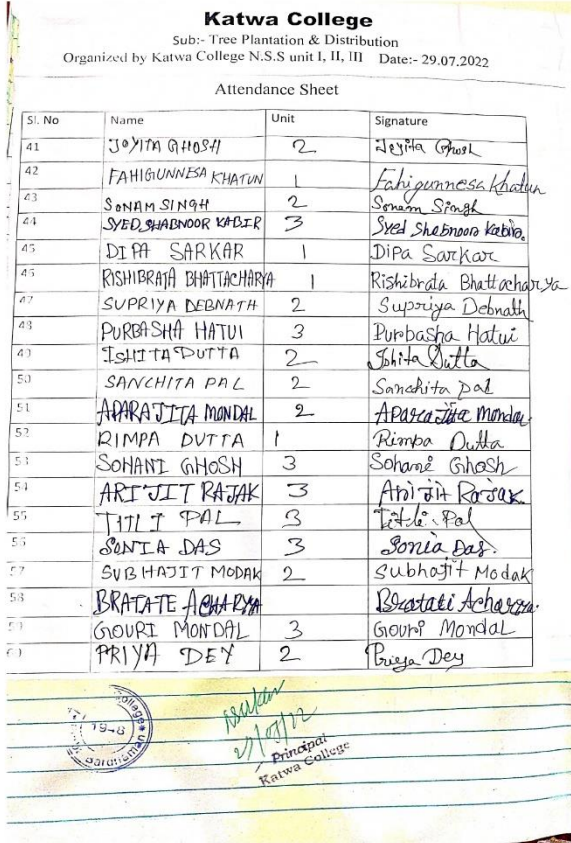 Katwa College
Sub:- Tree Plantation & Distribution
Organized by Katwa College N.S.S unit I, II, III Date:- 29.07.2022
Attendance Sheet
Sl. No Name Unit Signature
41 JOYITA GHOSH 2 Joyita Ghosh
42 FAHIGUNNESA KHATUN 1 Fahigunnesa Khatun
43 SONAM SINGH 2 Sonam Singh
44 SYED SHABNOOR KABIR 3 Syed Shabnoor Kabir.
45 DIPA SARKAR 1 Dipa Sarkar
46 RISHIBRATA BHATTACHARYA 1 Rishibrata Bhattacharya
47 SUPRIYA DEBNATH 2 Supriya Debnath
48 PURBASHA HATUI 3 Purbasha Hatui
49 ISHITA DUTTA 2 Ishita Dutta
50 SANCHITA PAL 2 Sanchita pal
51 APARAJITA MONDAL 2 Aparajita Mondal.
52 RIMPA DUTTA 1 Rimpa Dutta
53 SOHANI GHOSH 3 Sohani Ghosh
54 ARIJIT RAJAK 3 Arijit Rajak
55 TITLI PAL 3 Titli Pal
56 SONIA DAS 3 Sonia Das.
57 SUBHAJIT MODAK 2 Subhajit Modak
58 BRATATE ACHARYA Bratati Acharya.
59 GOURI MONDAL 3 Gouri Mondal
60 PRIYA DEY 2 Priya Dey
Principal
Katwa College